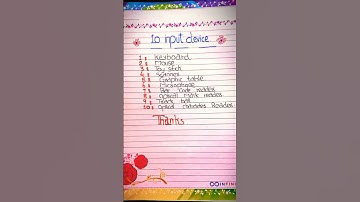 10 input device
1: Keyboard
2: Mouse
3: Joy stick
4: Scanner
5: Graphic table
6: Microphone
7: Bar Code reader
8: optical mark reader
9: Track ball
10: optical Reader
Thanks
INFIN